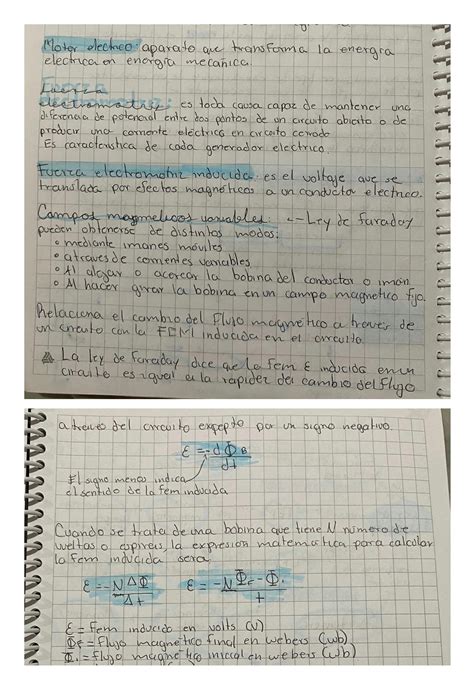 Motor electrico: aparato que transforma la energia
electrica en energia mecánica.
Fuerza
electromotriz: es toda causa capaz de mantener una
diferencia de potencial entre dos puntos de un circuito abierto o de
producir una corriente eléctrica en circuito cerrado
Es caracteristica de cada generador electrico.
Fuerza electromotriz inducida: es el voltaje que se
translada por efectos magnéticos a un conductor electrico.
Campos magneticos variables: ← Ley de Faraday
pueden obtenerse de distintos modos:
° mediante imanes móviles
° atraves de corrientes variables
° Al alejar o acercar la bobina del conductor o imán
° Al hacer girar la bobina en un campo magnetico fijo.
Relaciona el cambio del flujo magnético a traves de
un circuito con la FEM inducida en el circuito.
La ley de Faraday dice que la fem ε inducida en un
circuito es igual a la rapidez del cambio del flujo
a traves del circuito excepto por un signo negativo.
ε = -dΦB/dt
El signo menos indica
el sentido de la fem inducida
Cuando se trata de una bobina que tiene N número de
vueltas o espiras, la expresion matematica para calcular
la fem inducida sera:
ε = -N ΔΦ/Δt ε = -N Φf - Φi/t
ε = Fem inducido en volts (V)
Φf = Flujo magnético final en webers (wb)
Φi = flujo magnetico inicial en webers (wb)